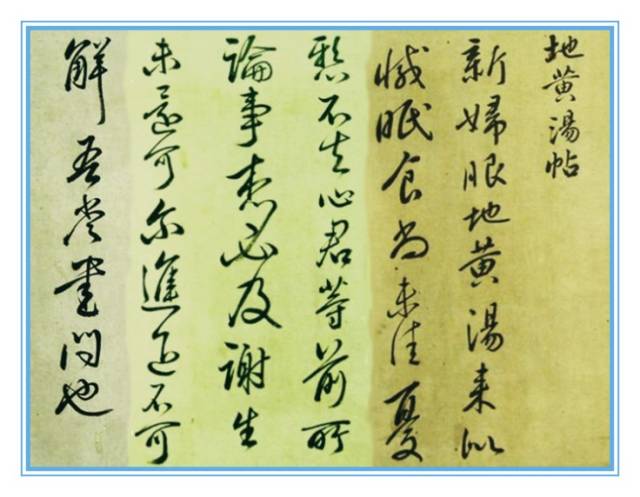 地黄湯帖
新婦服地黄湯来似
減眠食尚未佳憂
懸不去心君等前所
論事想必及謝生
未還可尔進退不可
解吾當書問也